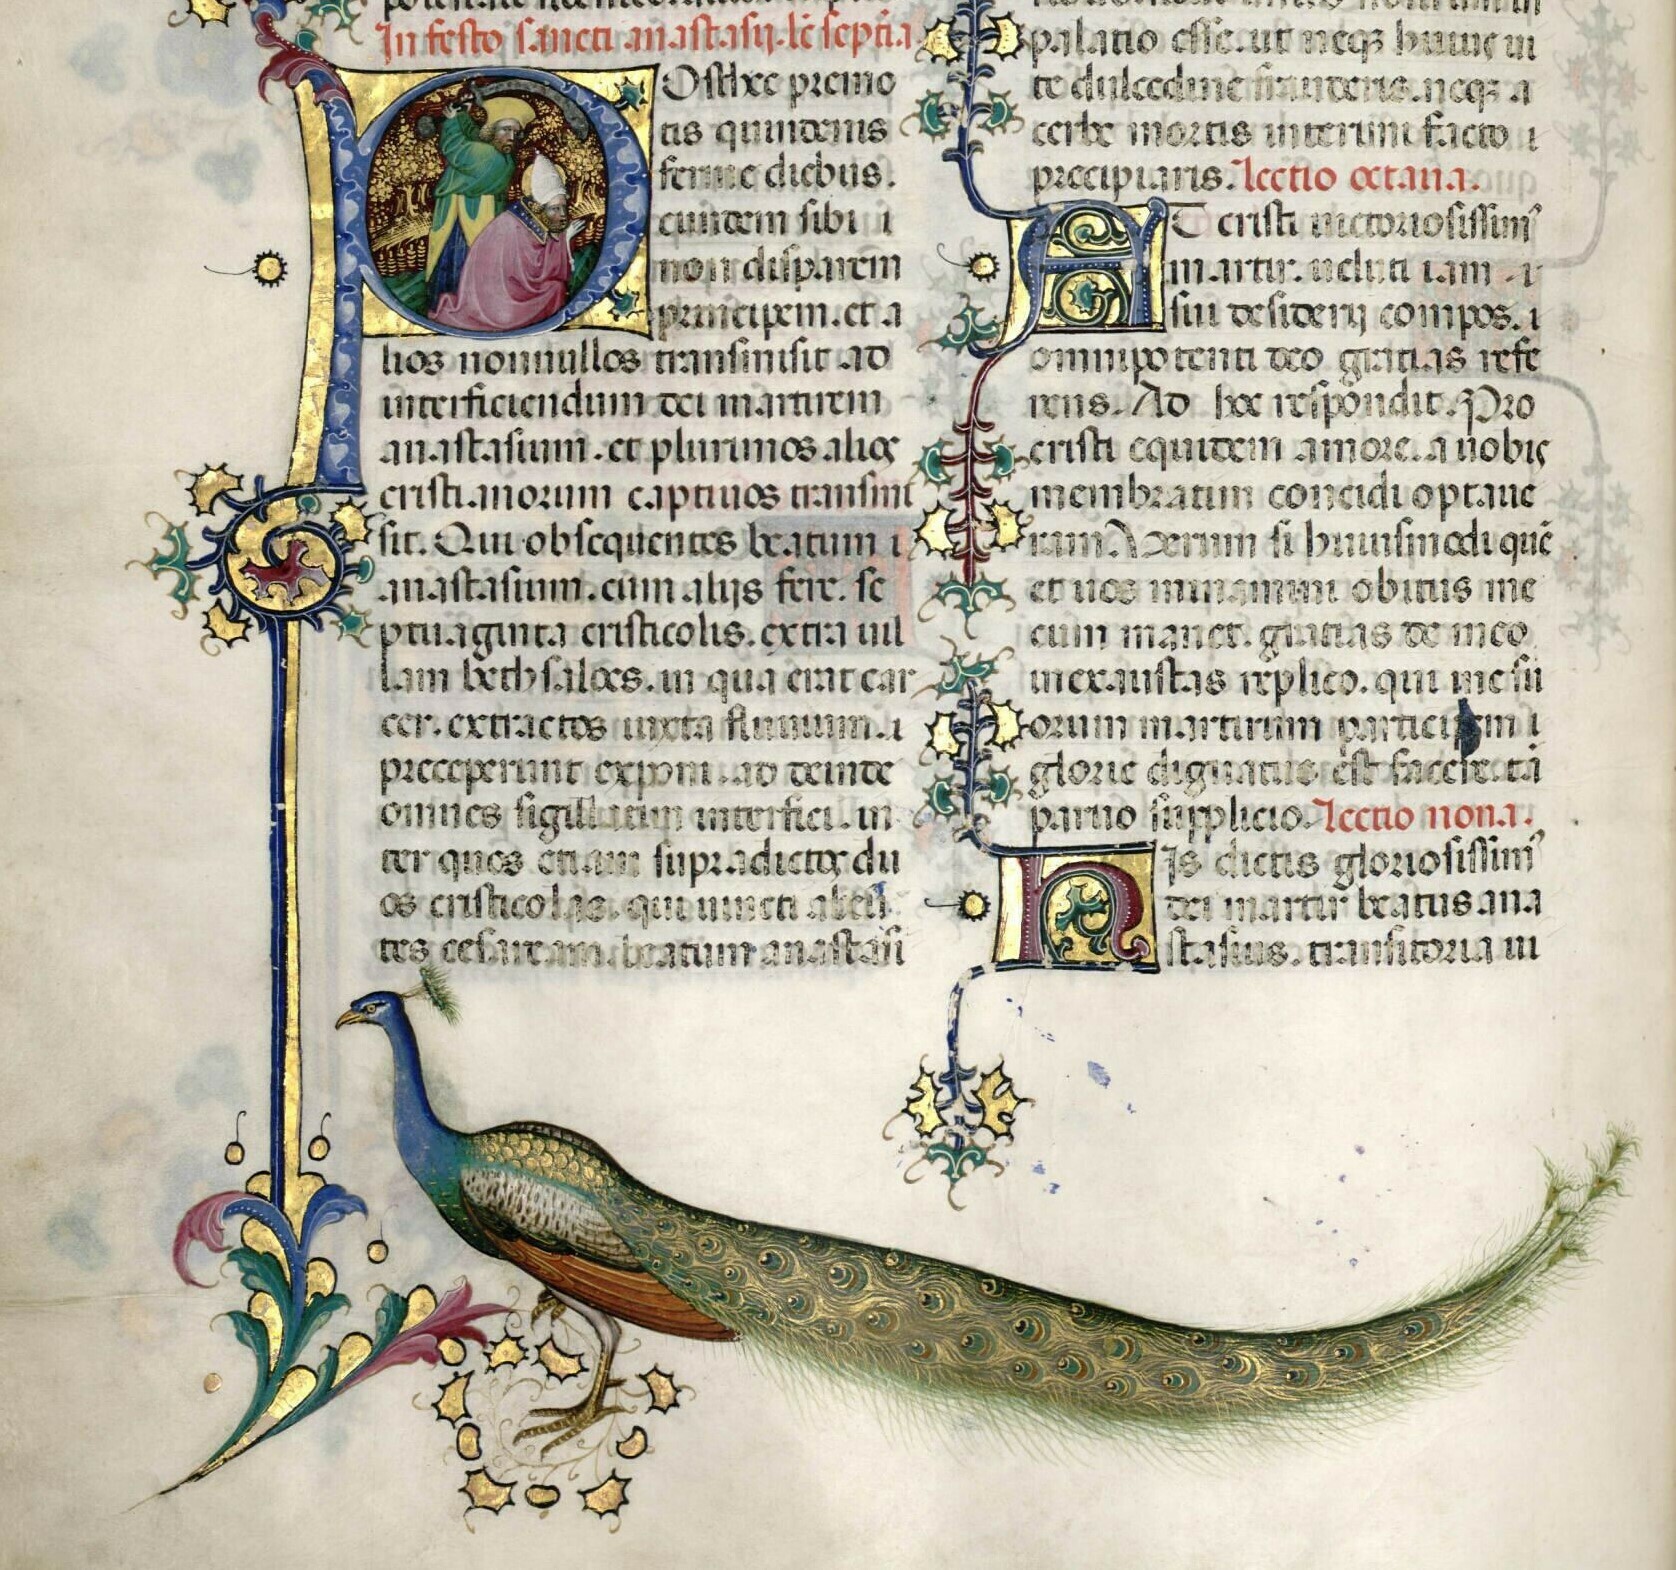 In festo sancti anastasij. lc̄ septia
Osthec premo
tis quindenis
ferme diebus.
eundem sibi i
non disparem
principem. et a
lios nonnullos transmisit ad
interficiendum dei martirem
anastasium. et plurimos alioꝝ
cristianorum captiuos transmi
sit. Qui obsequentes beatum i
anastasium. cum alijs fere. se
ptuaginta cristicolis. extra uil
lam bethsaloes. in qua erat car
cer. extractos iuxta fluuium. i
preceperunt exponi. ac deinde
omnes sigillatim interfici. in
ter quos etiam supradictoꝝ du
os cristicolas. qui uincti
tes cesaream. beatum anastasi
palatio esse. ut neqꝫ huius ui
te dulcedine frauderis. neqꝫ a
cerbe mortis interim facto i
precipiaris. Lectio octaua.
AT cristi uictoriosissimꝰ
martir. ueluti iam i
sui desiderij compos. i
omnipotenti deo gratias refe
rens. Ad hec respondit. Pro
cristi equidem amore. a uobis
membratim concidi optaue
ram. Verum si huiusmodi que
et uos minamini obitus me
cum manet. gratias de meo
inexaustas replico. qui me su
orum martirum participem i
glorie dignatus est facere. tā
paruo supplicio. Lectio nona.
His dictis gloriosissimꝰ
dei martir beatus ana
stasius. transitoria ui